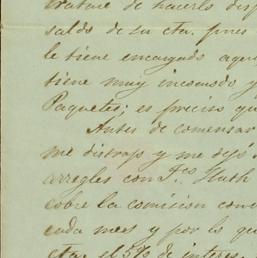 tratase de hacerlo disp
saldo de su cta. pues
le tiene encargado aque
tiene muy incomodo y
Paquetes; es preciso qu
Antes de comensar
me distrajo y me dejó
arregles con F.co Huth
cobre la comision conv
cada mes y por lo qu
cta. el 5% de interes